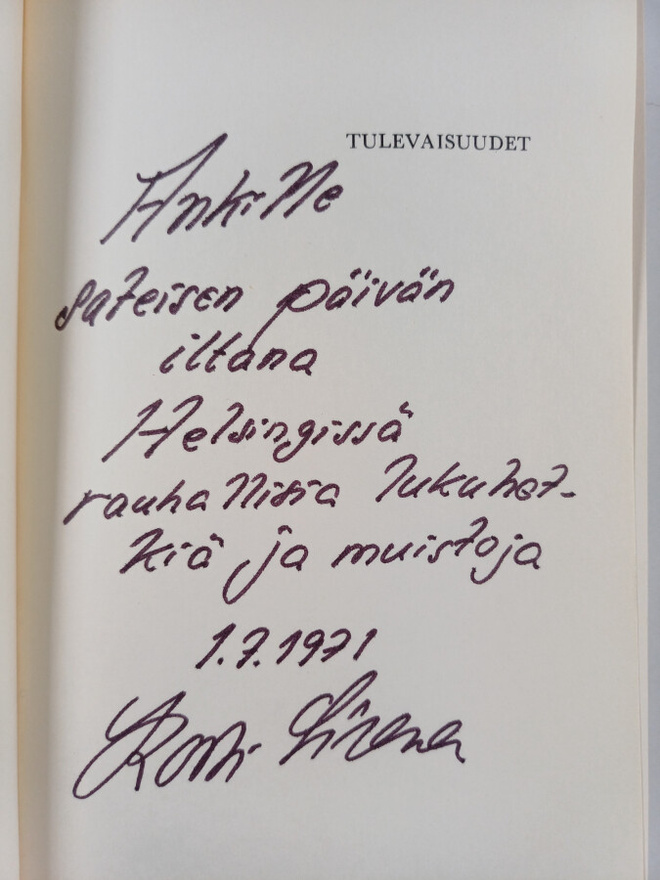 TULEVAISUUDET
Ankille
sateisen päivän
iltana
Helsingissä
rauhallisia lukuhet-
kiä ja muistoja
1.7.1971